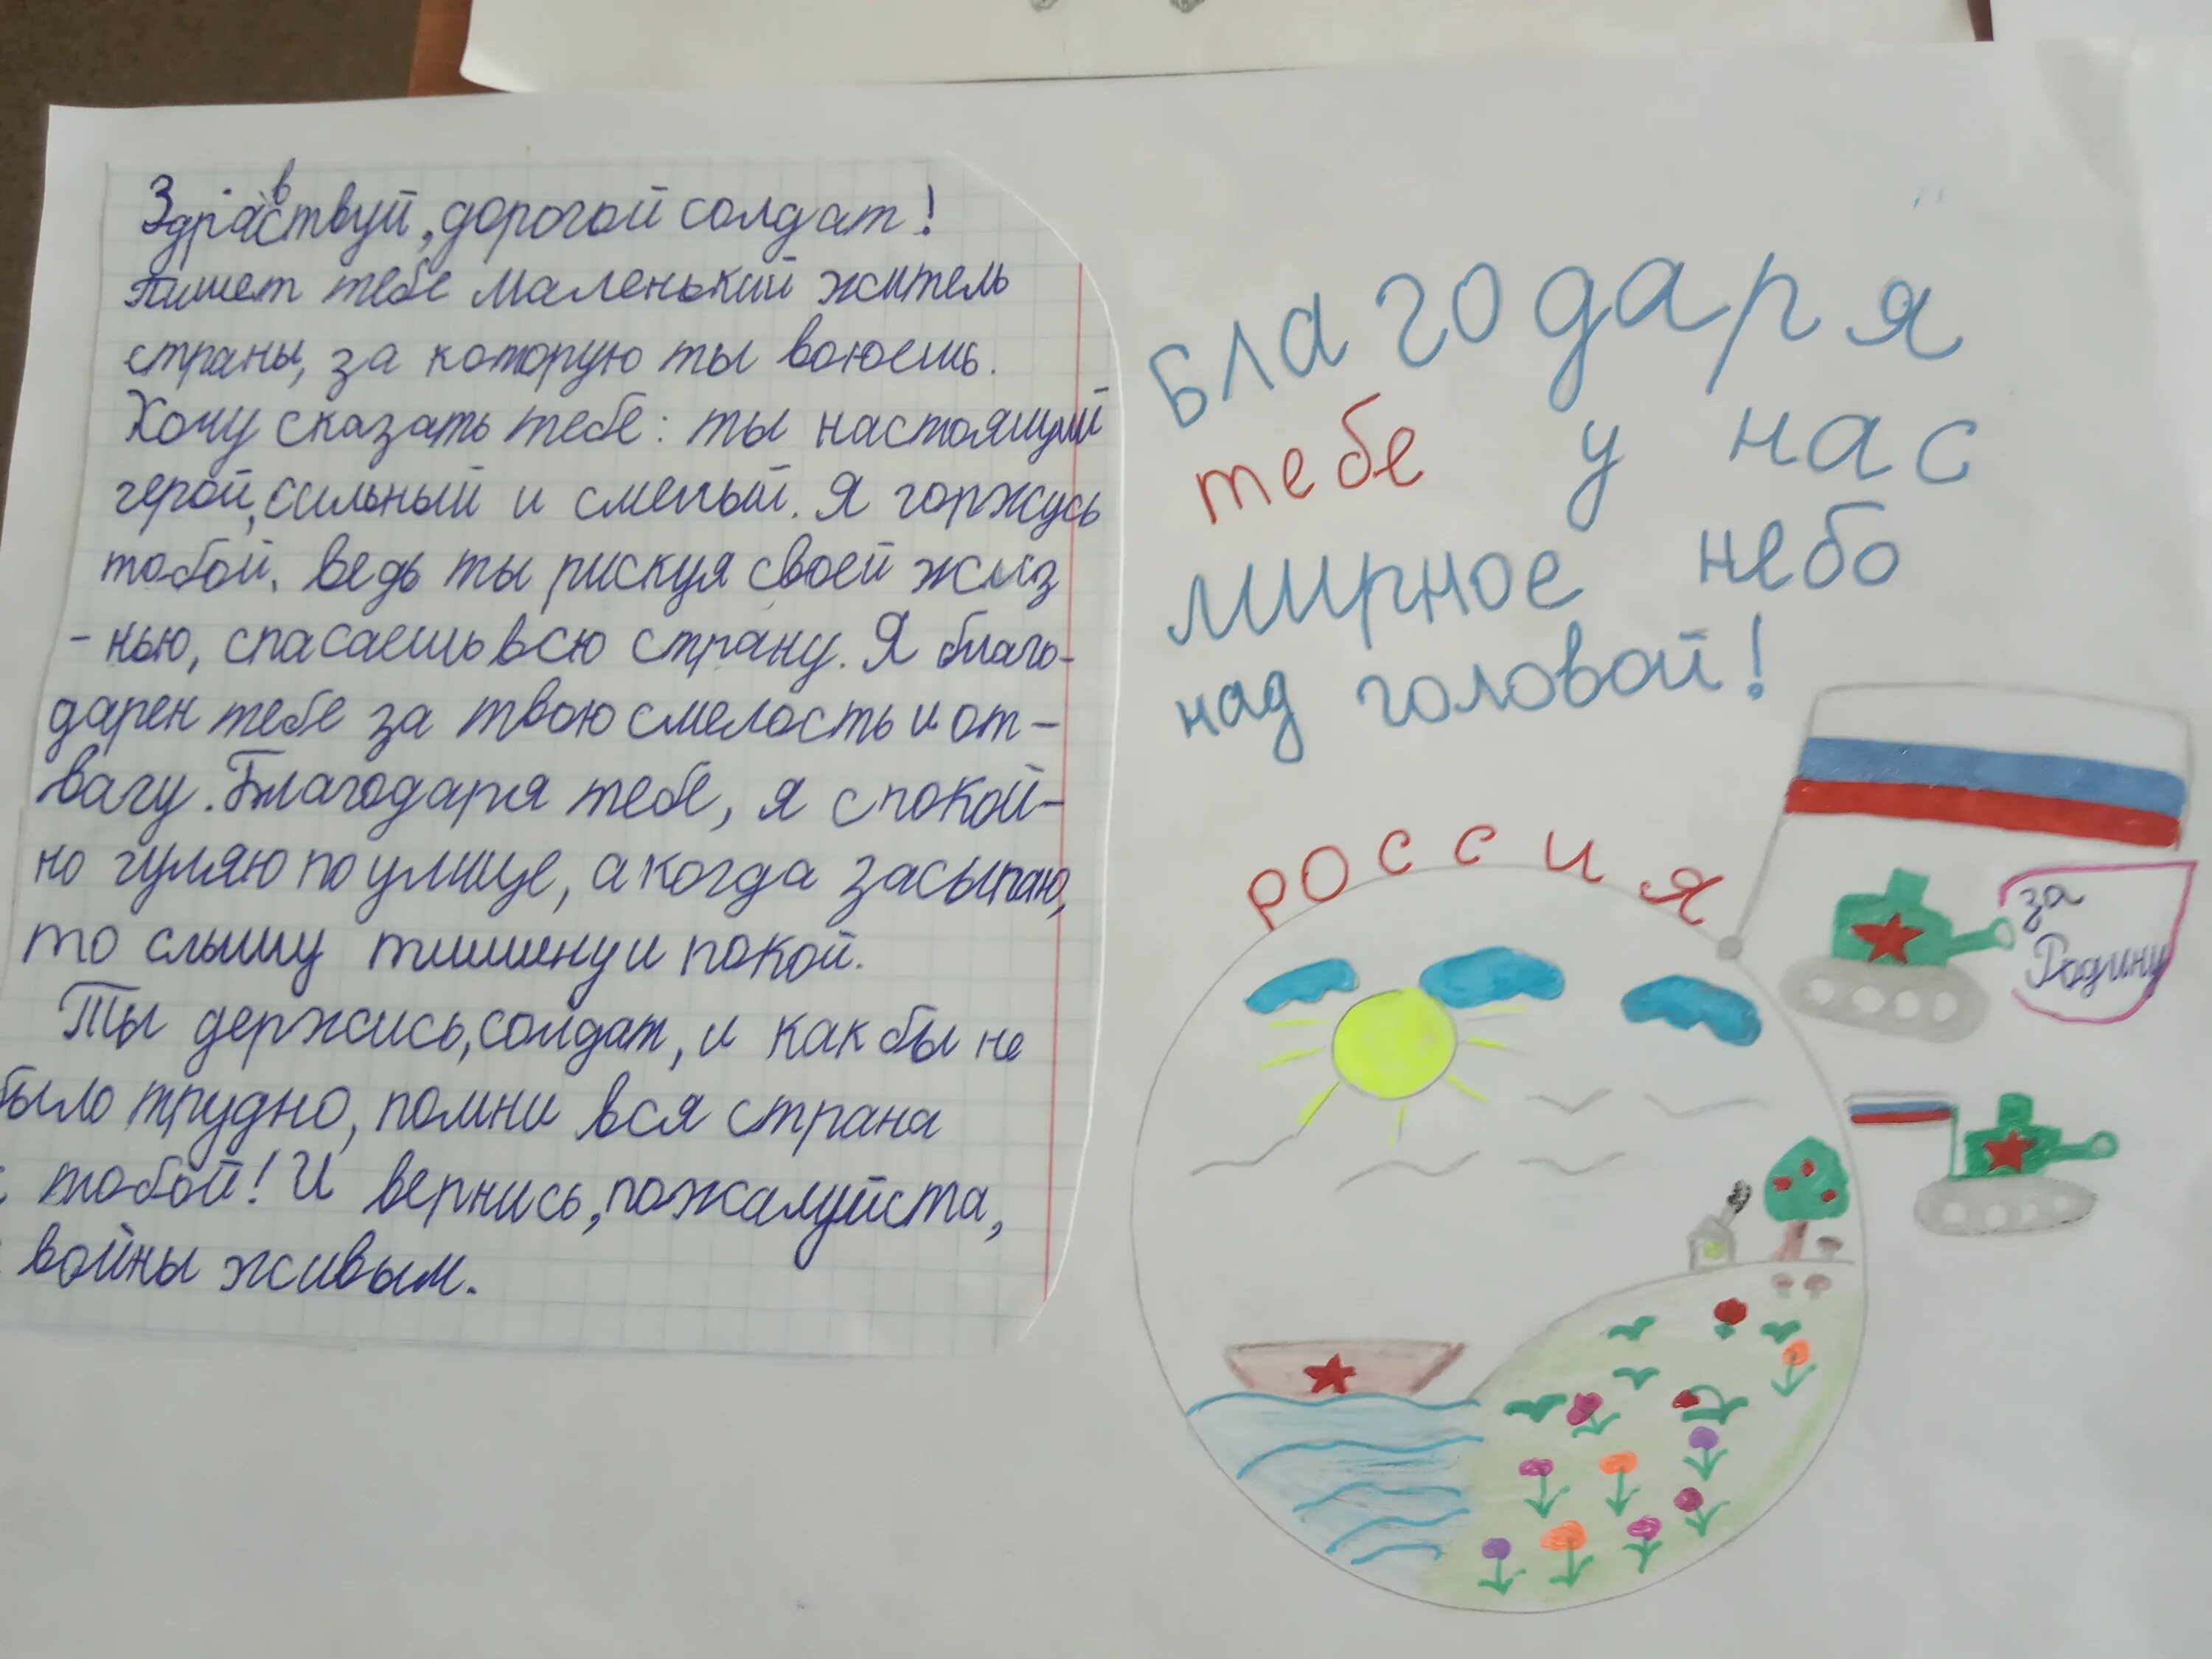 Здравствуй, дорогой солдат!
Пишет тебе маленький житель
страны, за которую ты воюешь.
Хочу сказать тебе: ты настоящий
герой, сильный и смелый. Я горжусь
тобой, ведь ты рискуя своей жиз
-нью, спасаешь всю страну. Я благо-
дарен тебе за твою смелость и от-
вагу. Благодаря тебе, я спокой-
но гуляю по улице, а когда засыпаю,
то слышу тишину и покой.
Ты держись, солдат, и как бы не
было трудно, помни вся страна
с тобой! И вернись, пожалуйста,
с войны живым.
Благодаря
тебе у нас
мирное небо
над головой!
РОССИЯ
за
Родину